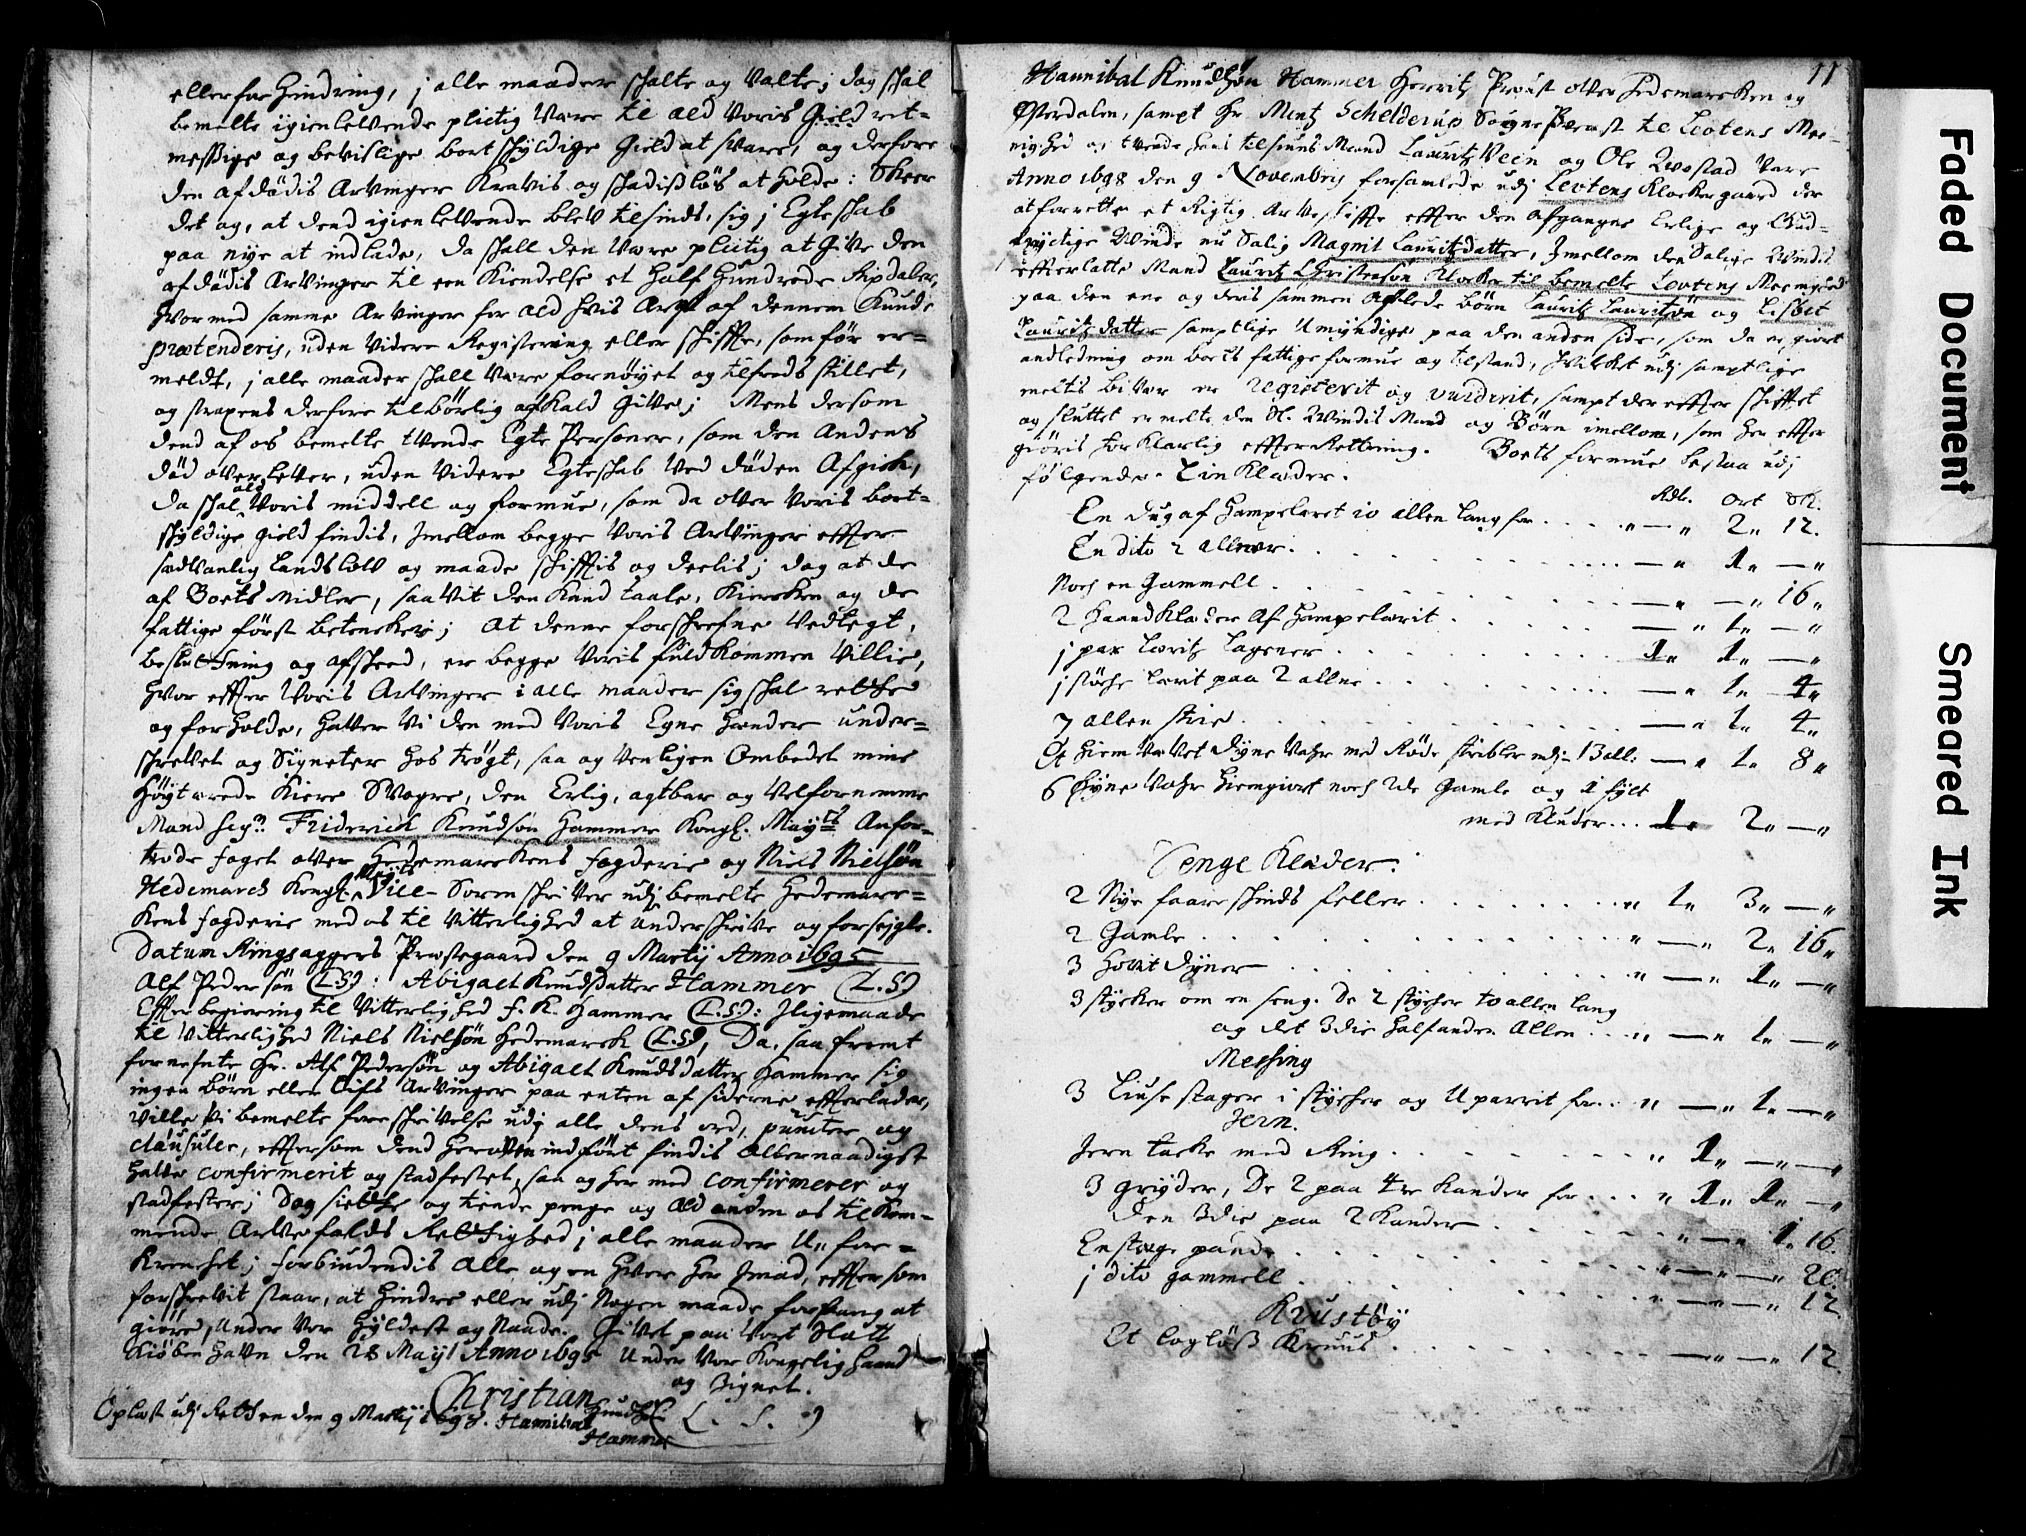 eller forhindring, j alle maader schalte og Valte; dog schal
bemelte igienlevende plictig Være til ald Voris Gield ret-
messige og bevislige bortschyldige Gield at svare, og derfore
den afdødis Arvinger Kravis og schadisløs at holde: Skeer
det og, at dend igienlevende blev tilsinds, sig j Egteschab
paa nye at indlade, da schall den Være plictig at Give den
afdødis Arvinger til een Kiendelse et Half Hundrede Rixdaler,
hvormed samme Arvinger for ald hvis Arf af dennem Kunde
prætenderis, uden Videre Registering eller schiffte, som før er-
meldt, j alle maader schall Være fornøyet og tilfreds stillet,
og strapens derfore tilbørlig afkald Give; Mens dersom
dend af os bemelte tvende Egte Personer, som den Andens
død overlever, uden Videre Egteschab Ved døden Afgick,
da schal ald Voris middell og formue, som da over Voris bort-
schyldige gield findis, Imellom begge Voris Arvinger effter
sædvanlig Landslov og maade schifftis og deelis; dog at de
af Boets Midler, saavit den Kand taale, Kiercken og de
fattige først betencker; At denne forschrefne Vedtegt,
beslutning og afscheed, er begge Voris fuldkommen Villie,
hvor effter Voris Arvinger i alle maader sig schal rette
og forholde, hafver Vi den med Voris Egne Hænder under-
schrevet og Signeter hos trøgt, saa og Venligen Ombedet mine
Høytærede Kiere Svogre, den Erlig, agtbar og Velfornemme
Mand Sign. Friderich Knudsøn Hammer Kongl. Mayts Anfor-
trode foget over Hedemarckens fogderie og Niels Nielsøn
Hedemarch Kongl. Mayts Vice-Sorenschriver udj bemelte Hedemarc-
kens fogderie med os til Vitterlighed at underschrive og forseigle.
Datum Ringsaggers Præstegaard den 9 Martij Anno 1695
Alf Pedersøn (L.S.): Abigael Knudsdatter Hammer (L.S.)
Effter begiering til Vitterlighed F. K. Hammer (L.S.): Jligemaade
til Vitterlighed Niels Nielsøn Hedemarch (L.S.), Da, saa fremt
fornefnte Hr. Alf Pedersøn og Abigael Knudsdatter Hammer sig
ingen børn eller Lifs Arvinger paa enten af siderne effterlader,
Ville Vi bemelte foreschrivelse udj alle dens ord, puncter og
clausuler, effter som dend her oven indført findis Allernaadigst
have confirmerit og stadfestet, saa og her med confirmerer og
stadfester; Dog siette og tiende penge og Ald anden os tilkom-
mende Arvefalds Rettighed j alle maader U-for-
krencket; forbiudendis Alle og en Hver her Imod, effter som
forschrevit staar, at hindre eller udj Nogen maade forfang at
giøre, under Vor Hyldest og Naade. Givet paa Vort Slott
Kiøbenhavn den 28 Maij Anno 1695 Under Vor Kongelig Haand
og Signet.
Christian (L. S.)
Oplæst udj Retten den 9 Martij 1698. Hannibal Knudsøn
Hammer
11
Hannibal Knudsøn Hammer Herritz Proust over Hedemarcken og
Østerdalen, sampt Hr. Mentz Schelderup Sogne Prest til Leotens Me-
nighed og tvende hans tilsiuns Mænd Lauritz Vein og Ole Qvostad Vare
Anno 1698 den 9 Novembris forsamlede udj Leotens Klockergaard der
at forrette et Rigtig Arfveschiffte effter den afgangne Erlige og Gud-
frygtige Qvinde nu Salig Magnil Lauritzdatter, Imellom den Salige Qvindes
effterlatte Mand Lauritz Christensøn Klocker til bemelte Leotens Meenighed
paa den ene og deris sammen Aflede børn Lauritz Lauritzøn og Lisbet
Lauritzdatter samptlige Umyndige paa den anden side, som da er giort
andledning om boets fattige formue og tilstand, hvilcket udj samptlige
meltis bivær er registerit og vurderit, sampt der effter schifftet
og sluttet ermelte den Sl. Qvindis Mand og Børn imellom, som her effter
giøris forklarlig effterRettning. Boets formue bestaa udj
følgende. Linklæder.
Rdl. Ort Sk.
En dug af Hampelæret 10 allen lang for .... " — " 2" 12.
En dito 2 allner. .... — " 1" — "
Noch en Gammell. .... — " — " 16"
2 Haandklæder Af Hampelærit .... — " 1" — "
j par Lærits Lagener .... 1" 1" — "
j støche Lærit paa 2 allne .... — " 1" 4"
7 allen strie. .... — " 1" 4"
Et Hiem Vævet dyne Vahr med Røde stribler udj 13 all: — " 1" 8"
6 Hyne Vahr Hiemgiort noch 2de Gamle og 1 fylt
med Kluder... 1" 2" — "
Senge Klæder:
2 Nye faareschinds feller .... " 1" 3" — "
2 Gamle .... " — " 2" 16"
3 Hovit dyner .... " — " 1" — "
3 stycher om en seng. De 2 stycher to allen lang
og det 3die halfanden Allen .... " — " 1" — "
Messing
3 Liusestager i stycher og Uparrit for .. " — " 1" — "
Jern.
Jern tacke med Ring .... " 1" — " — "
3 gryder, De 2 paa 4re Kander for .... " 1" 1" — "
den 3die paa 2 Kander .... " — " 1" 16.
En stege pande .... " — " — " 20.
j dito gammell. .... " — " — " 12
Krustøy
Et Logløss Kruus .... — " — " 12.
Faded Document
Smeared Ink